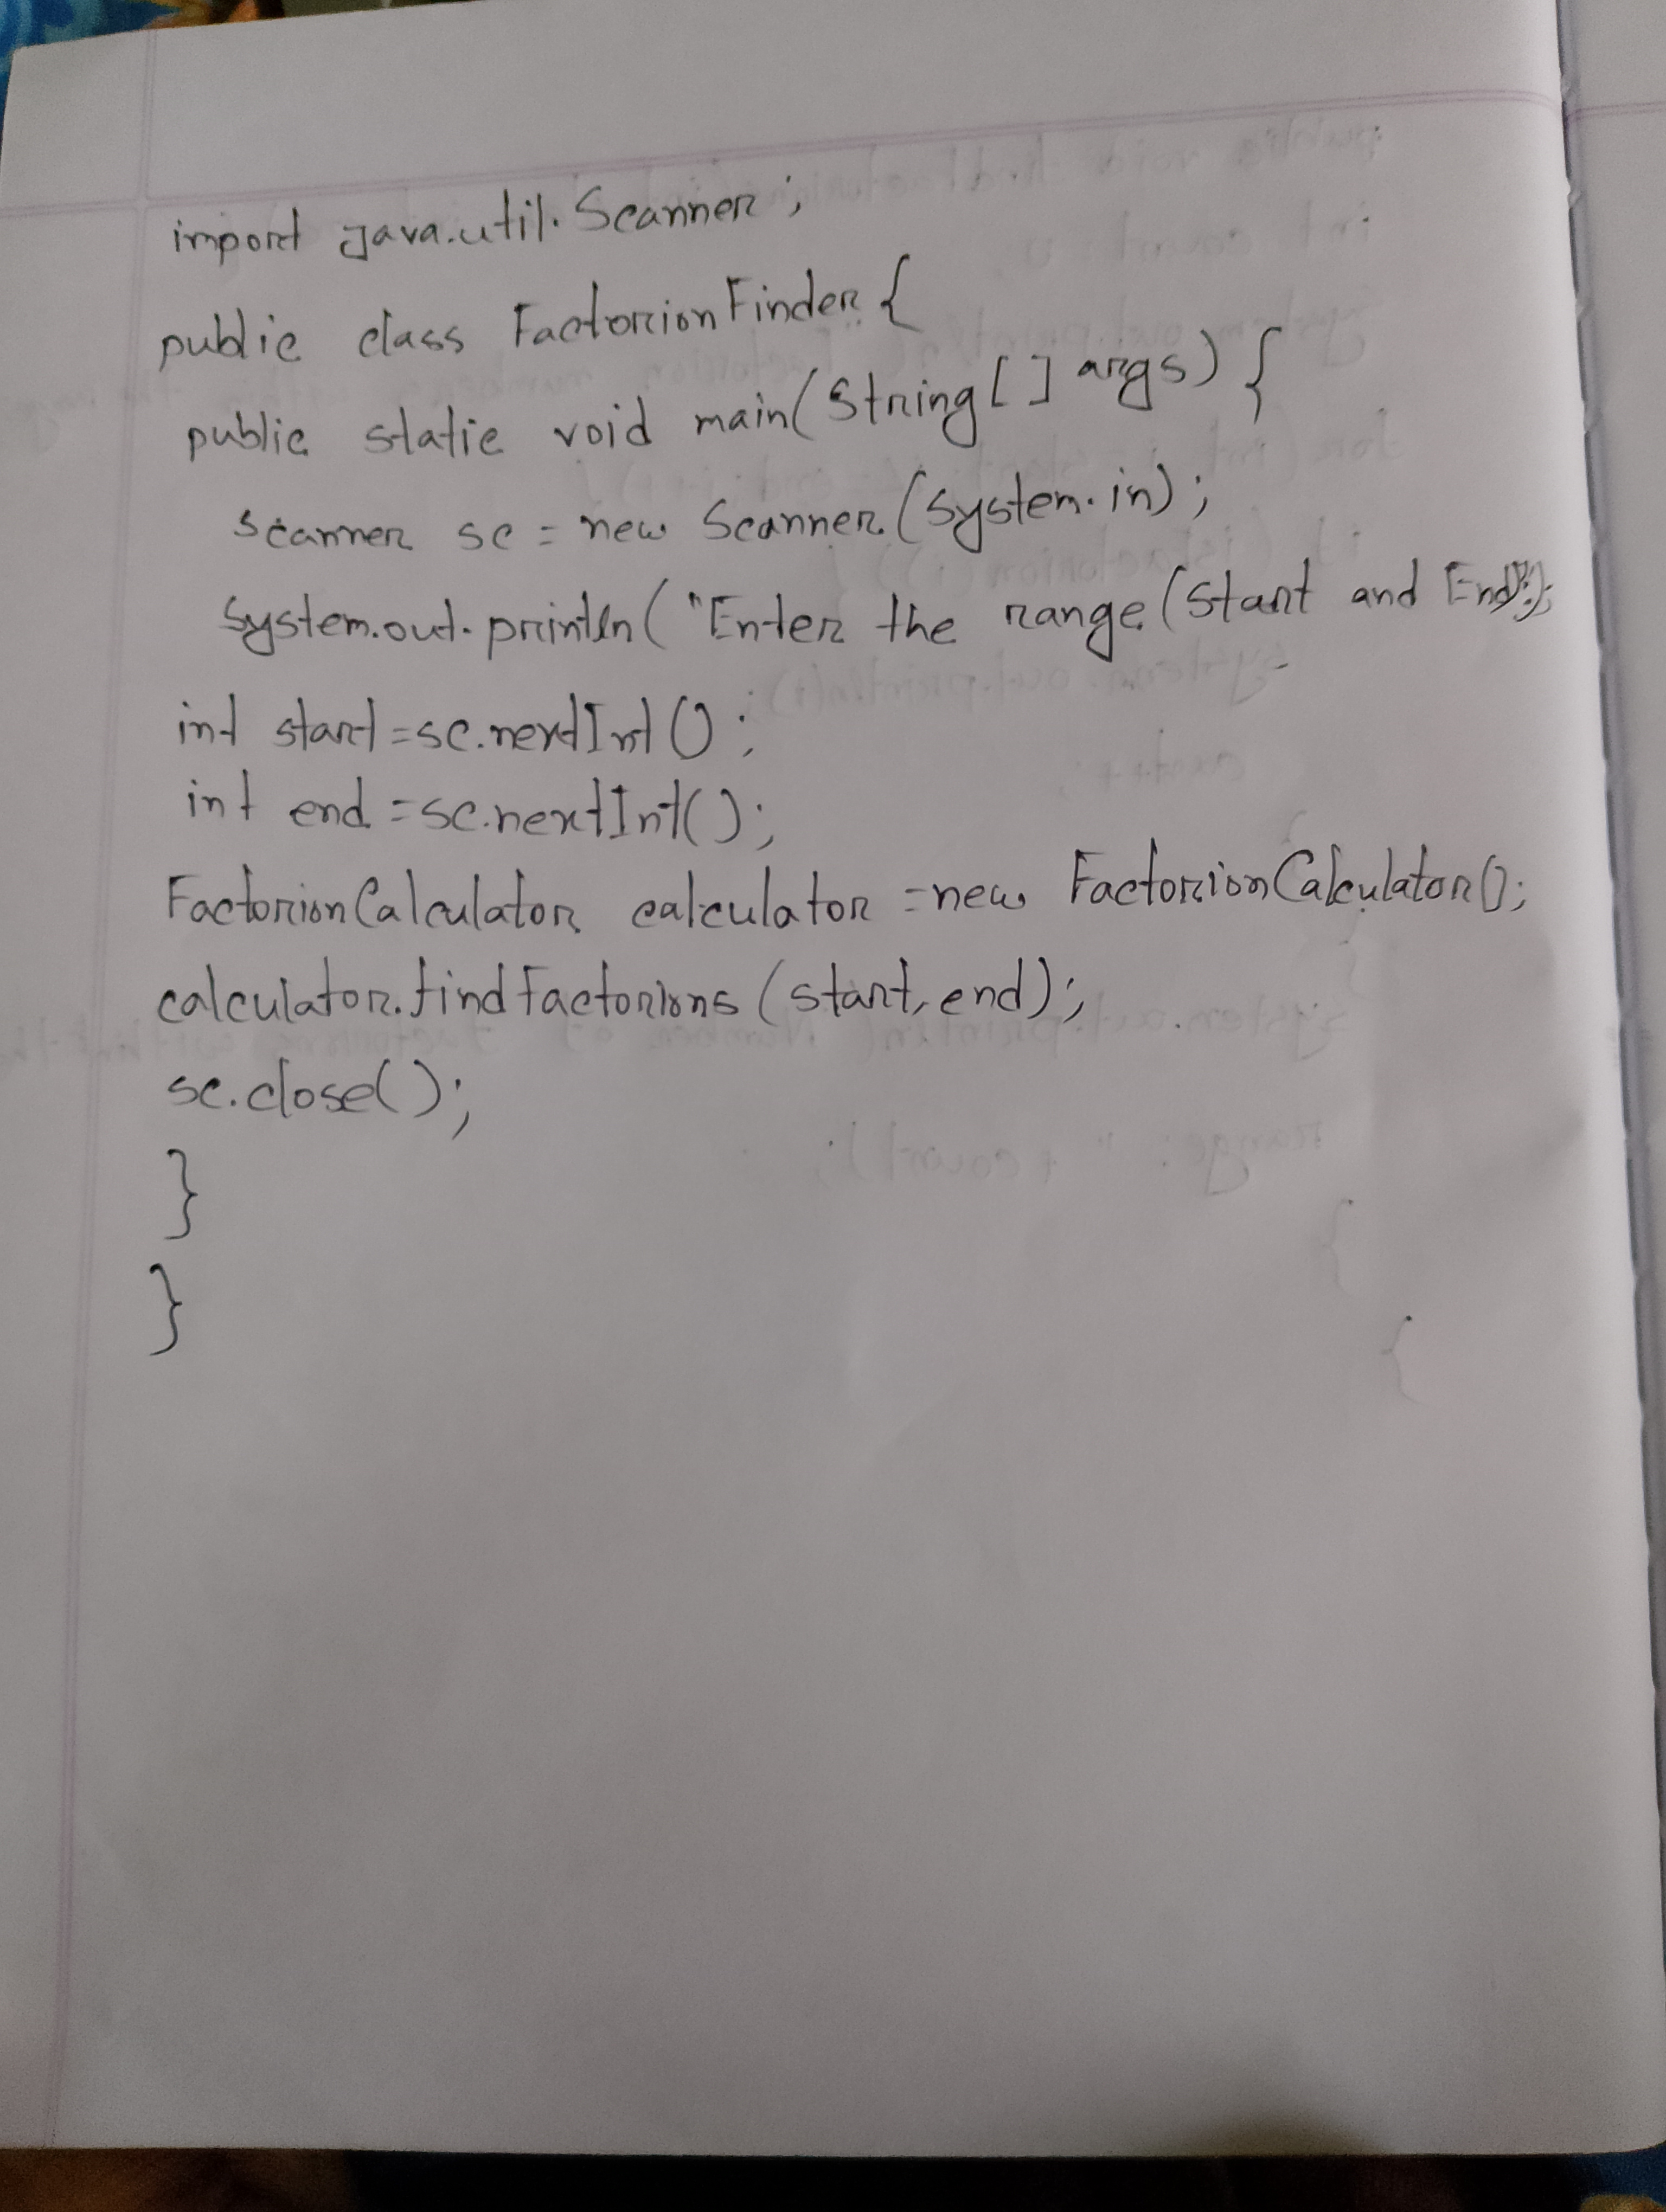 import java.util.Scanner;
public class FactorionFinder {
public static void main(String [] args) {
Scanner sc = new Scanner(System.in);
System.out.println("Enter the range (Start and End");
int start = sc.nextInt();
int end = sc.nextInt();
FactorionCalculator calculator = new FactorionCalculator();
calculator.findFactorions (start, end);
sc.close();
}
}